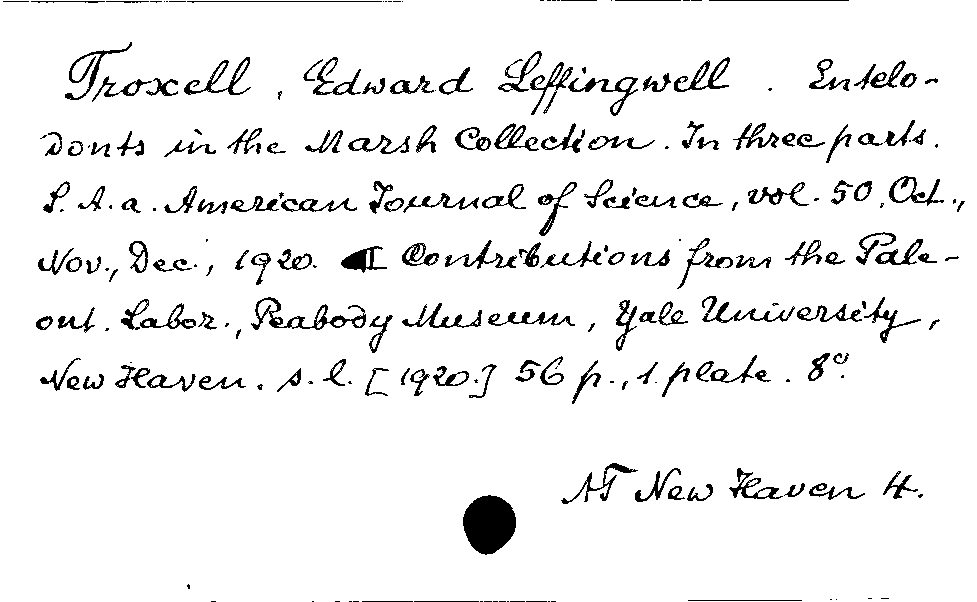 Troxell, Edward Leffingwell. Entelo-
donts in the Marsh Collection. In three parts.
S. A. a. American Journal of Science, vol. 50, Oct.,
Nov., Dec., 1920. Contributions from the Pale-
ont. Labor., Peabody Museum, Yale University,
New Haven. s. l. [1920.] 56 p., 1 plate. 8°.
AT New Haven 4.